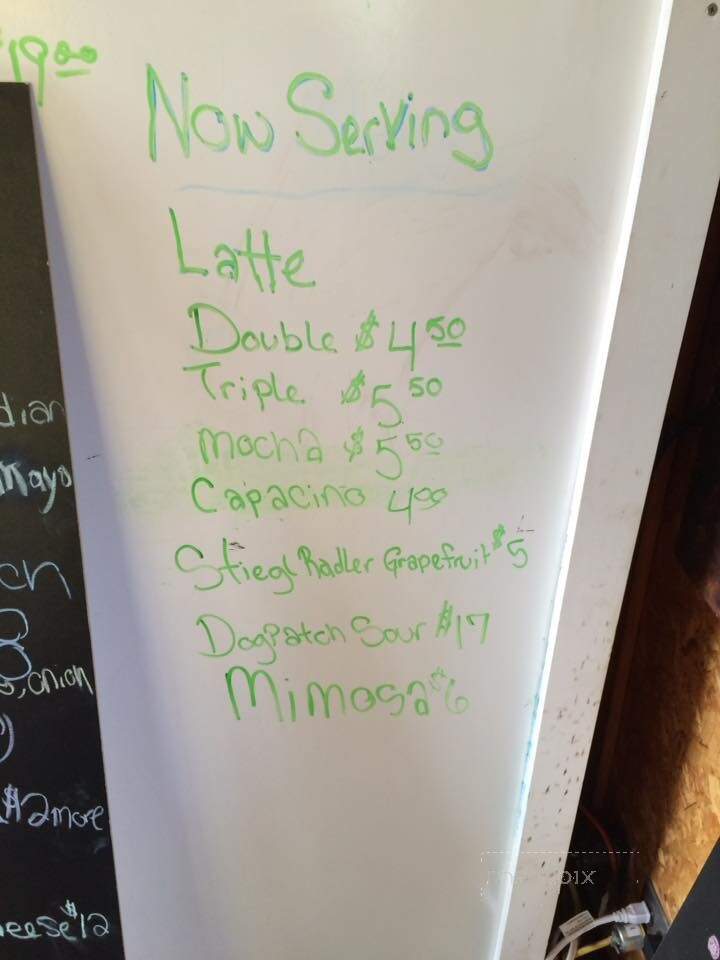 $19.00
Now Serving
Latte
Double $4.50
Triple $5.50
Mocha $5.50
Capacino 4.00
Stiegl Radler Grapefruit $5
Dogpatch Sour $17
Mimosa $6
Mayo
, onion
$2 more
$12